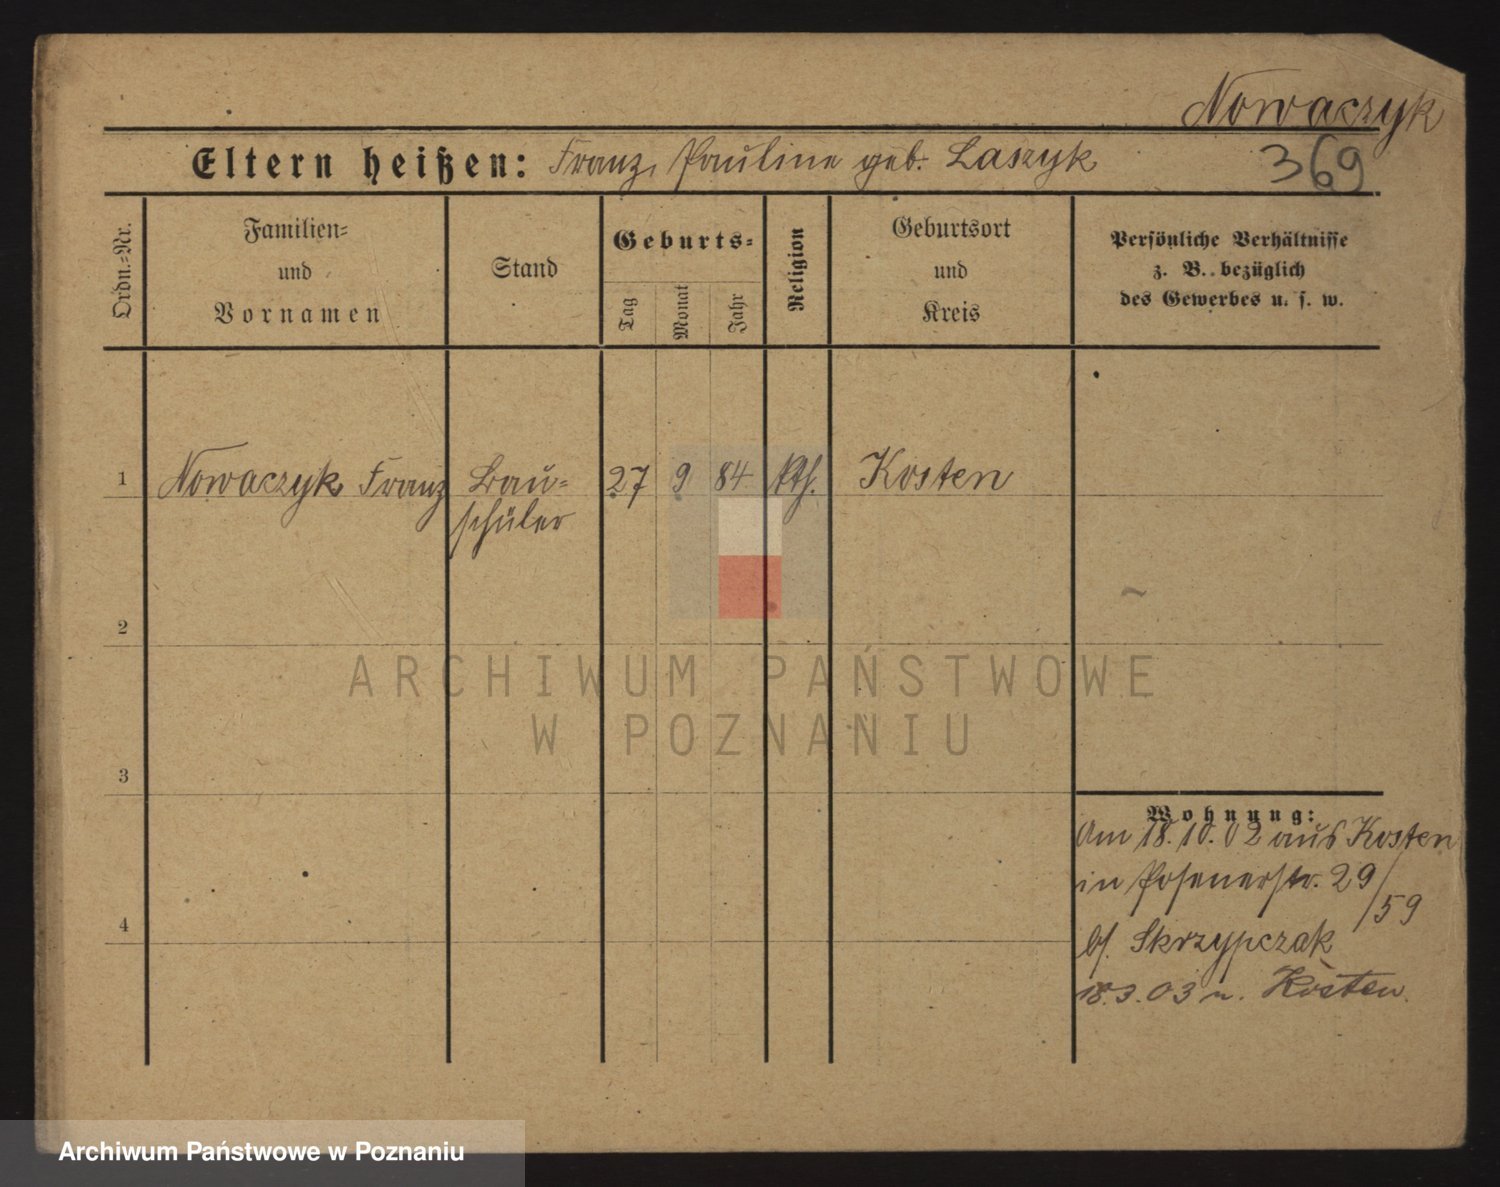 Nowaczyk
369
Eltern heißen: Franz, Pauline geb. Laszyk
Ordn.-Nr.
Familien-
und
Vornamen
Stand
Geburts-
Tag
Monat
Jahr
Religion
Geburtsort
und
Kreis
Persönliche Verhältnisse
z. B. bezüglich
des Gewerbes u. s. w.
1 Nowaczyk Franz Bau- 27 9 84 kth. Kosten
schüler
2
3
4
Wohnung:
Am 18.10.02 aus Kosten
in Posenerstr. 29/59
b/. Skrzypczak
18.3.03 n. Kosten.
ARCHIWUM PAŃSTWOWE
W POZNANIU
Archiwum Państwowe w Poznaniu